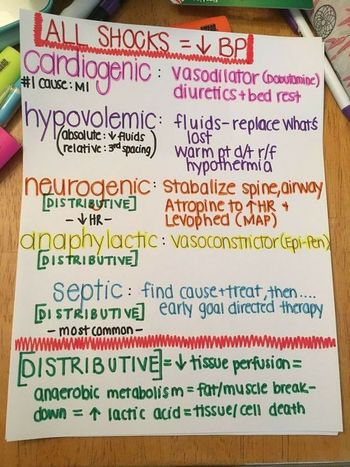 ALL SHOCKS = ↓ BP
cardiogenic: vasodilator (Dobutamine)
#1 cause: MI diuretics + bed rest
hypovolemic: fluids - replace what's
(absolute: ↓ fluids lost
(relative: 3rd spacing) warm pt d/t r/f
hypothermia
neurogenic: Stabalize spine, airway
[DISTRIBUTIVE] Atropine to ↑ HR +
- ↓ HR - Levophed (MAP)
anaphylactic: vasoconstrictor (Epi-Pen)
[DISTRIBUTIVE]
septic: find cause + treat, then....
[DISTRIBUTIVE] early goal directed therapy
- most common -
[DISTRIBUTIVE] = ↓ tissue perfusion =
anaerobic metabolism = fat/muscle break-
down = ↑ lactic acid = tissue/cell death